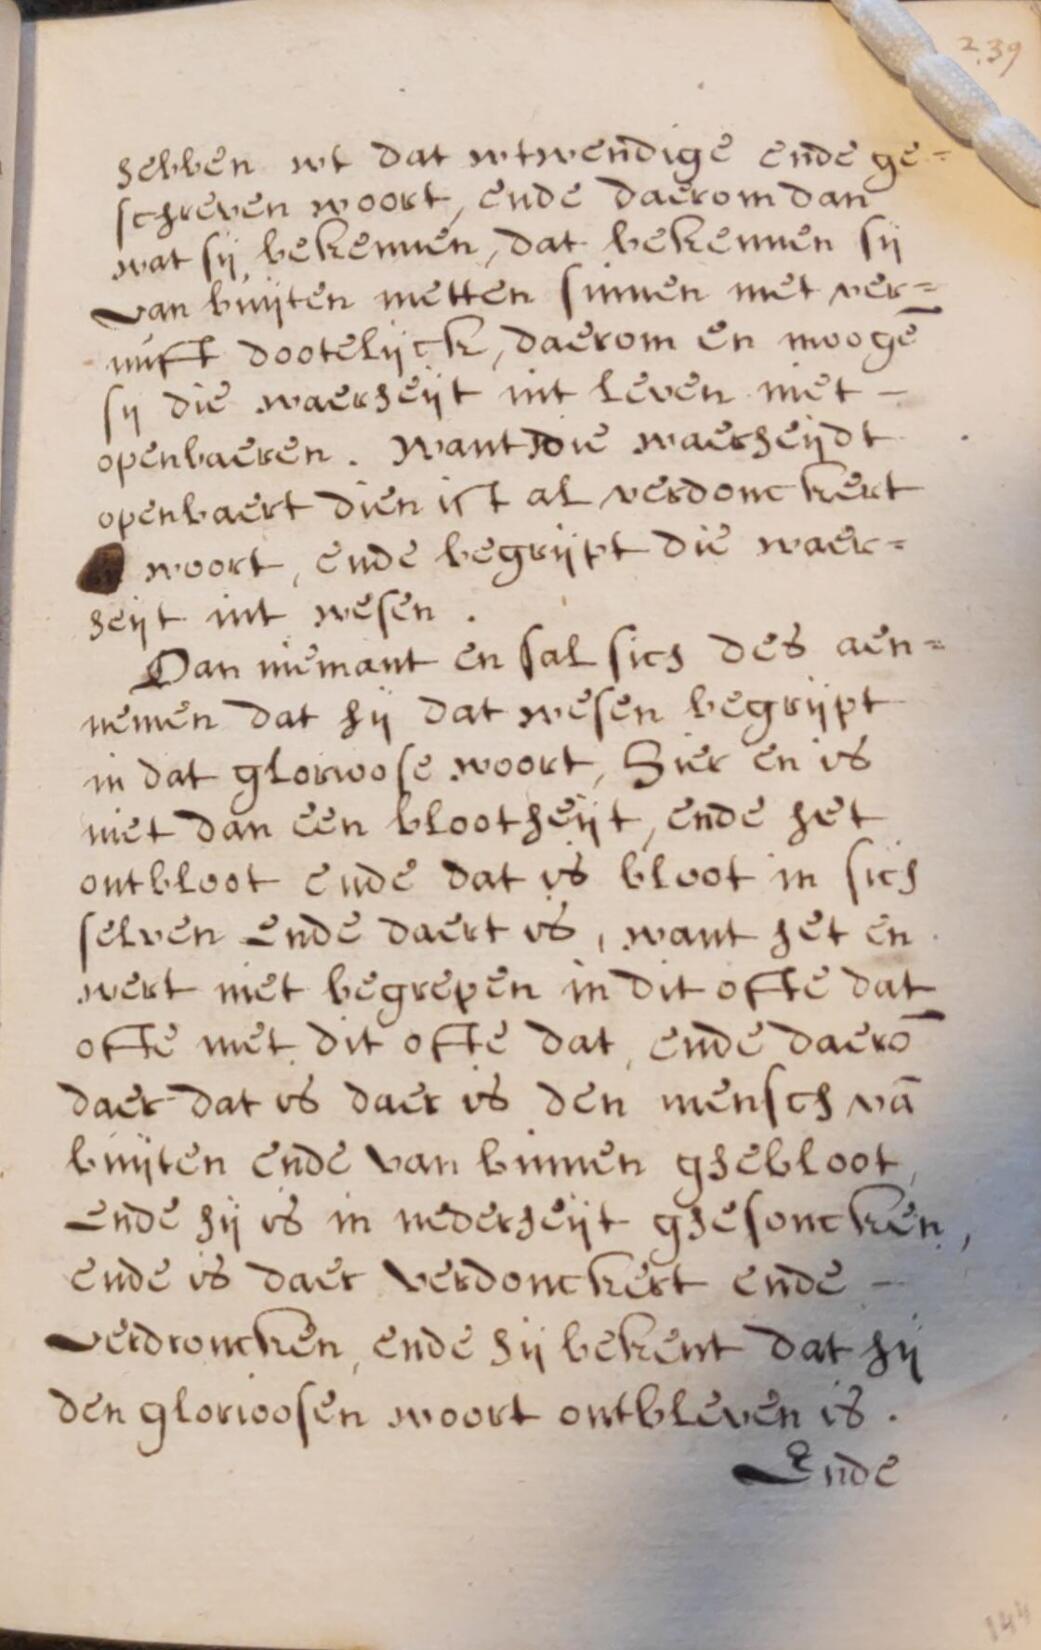 239
hebben wt dat wtwendige ende ge=
schreven woort, ende daerom dan
wat sij bekennen, dat bekennen sij
van buijten metten sinnen met ver=
nuft dootelijck, daerom en moogē
sij die waerheijt int leven niet -
openbaeren. Want die waerheijdt
openbaert dien ist al verdonckert
woort, ende begrijpt die waer=
heijt int wesen.
Dan niemant en sal sich des aen=
nemen dat hij dat wesen begrijpt
in dat glorioose woort, Hier en is
niet dan een blootheijt, ende het
ontbloot ende dat is bloot in sich
selven Ende daert is, want het en
wert niet begrepen in dit ofte dat
ofte met dit ofte dat, ende daerō
daer dat is daer is den mensch vā
buijten ende van binnen ghebloot,
Ende hij is in nederheijt ghesoncken,
ende is daer verdonckert ende -
verdroncken, ende hij bekent dat hij
den glorioosen woort ontbleven is.
Ende
144